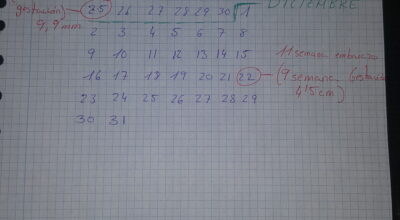 DICIEMBRE
gestación) 25 26 27 28 29 30 1
9,9mm 2 3 4 5 6 7 8
9 10 11 12 13 14 15 11 semana embarazo
16 17 18 19 20 21 22 (9 semana
23 24 25 26 27 28 29 4'5cm)
30 31